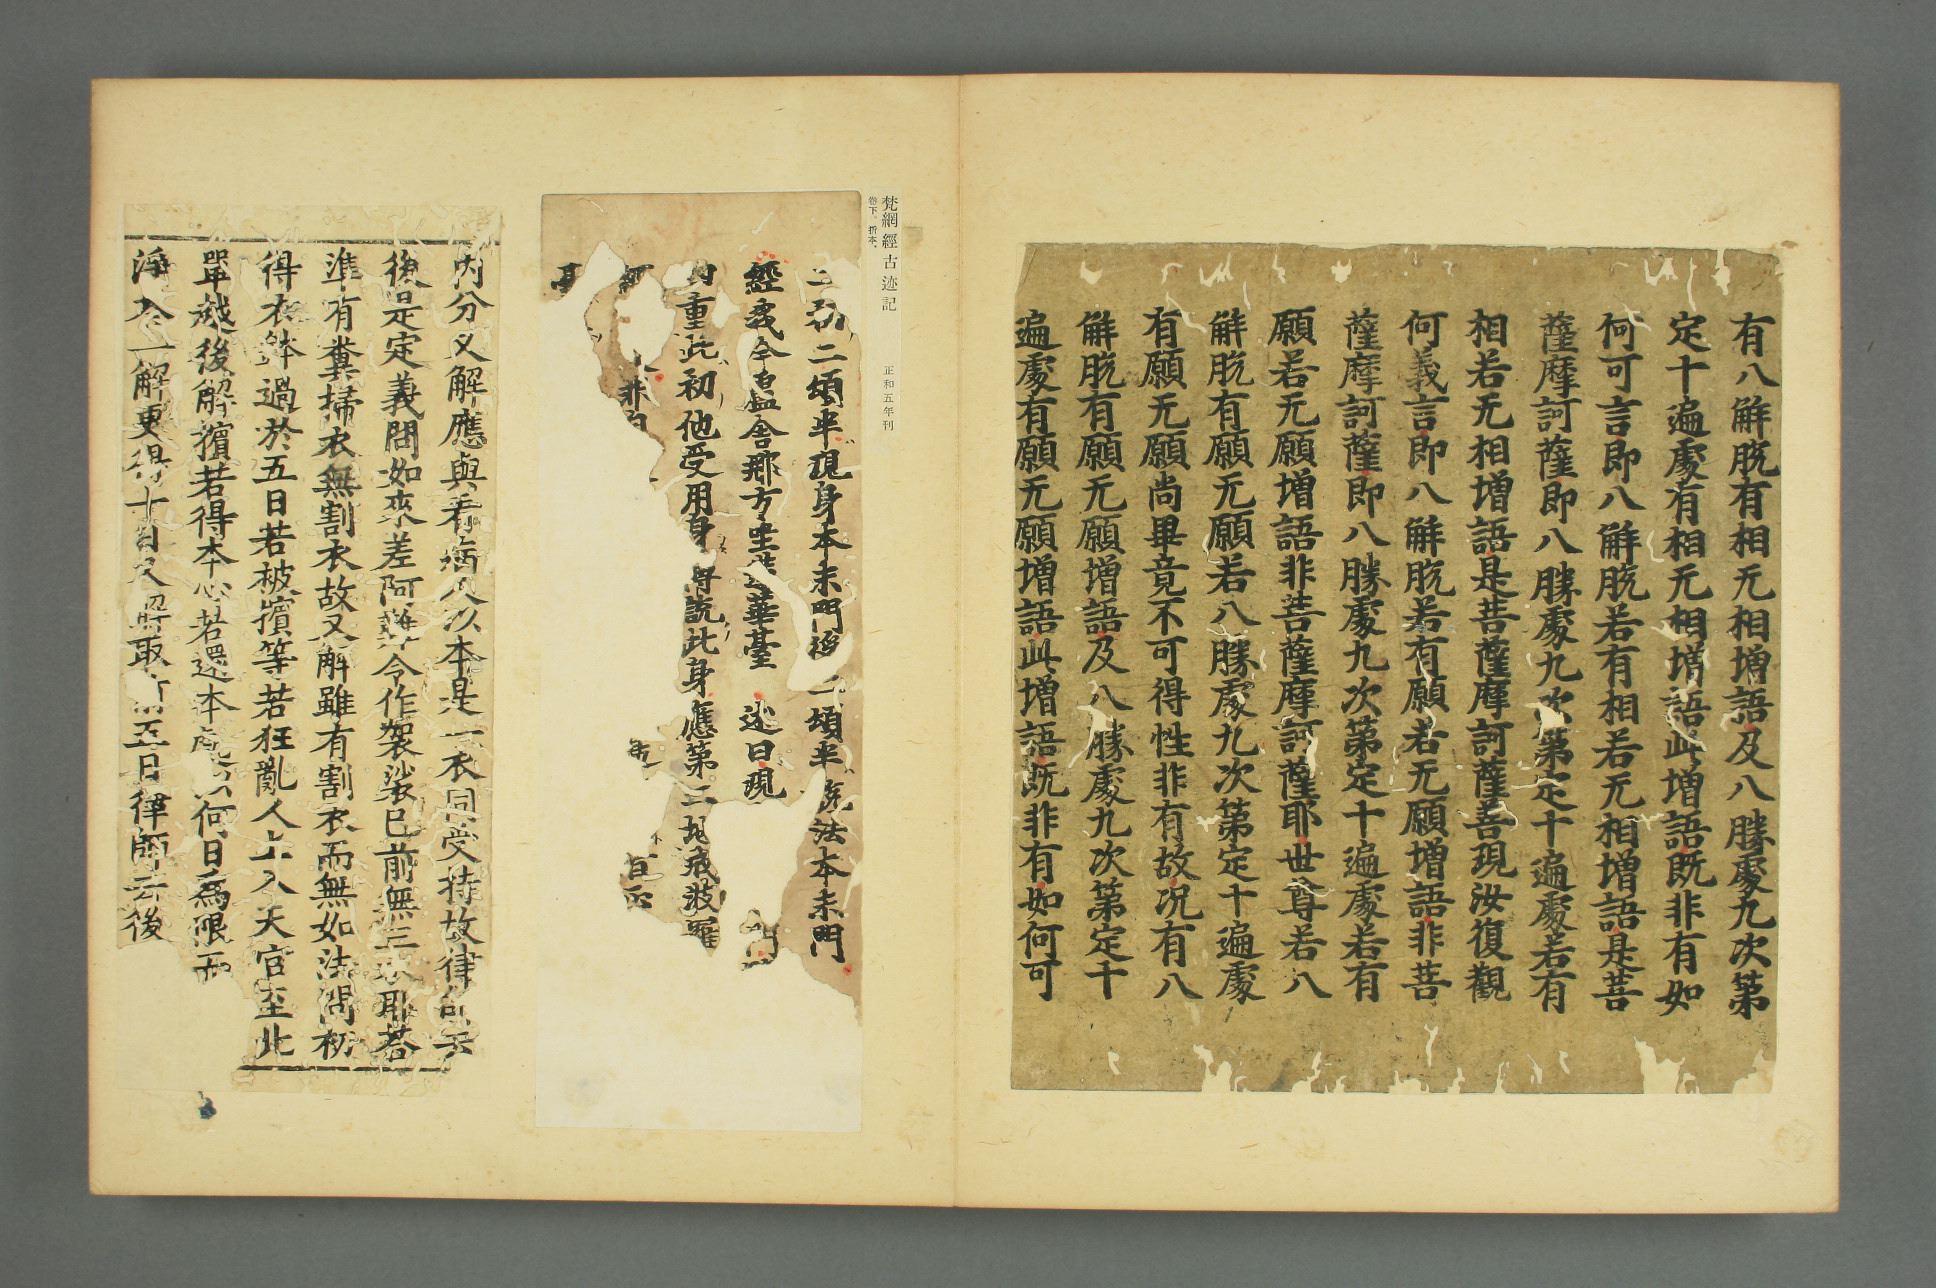 有八解脱有相无相増語及八勝處九次第
定十遍處有相无相増語此増語既非有如
何可言即八解脱若有相若无相増語是菩
薩摩訶薩即八勝處九次第定十遍處若有
相若无相増語是菩薩摩訶薩善現汝復觀
何義言即八解脱若有願若无願増語非菩
薩摩訶薩即八勝處九次第定十遍處若有
願若无願増語非菩薩摩訶薩耶世尊若八
解脱有願无願若八勝處九次第定十遍處
有願无願尚畢竟不可得性非有故况有八
解脱有願无願増語及八勝處九次第定十
遍處有願无願増語此増語既非有如何可
梵網經古迹記
卷下。折本。
正和五年刊
初二頌半現身本末門後二頌半説法本末門
經我今盧舍那方坐蓮華臺 述曰現
重此初他受用身 説此身應第二地戒波羅
非自
内分又解應與看病人以本是一衣同受持故律師云
後是定義問如來差阿難令作袈裟已前無三衣耶答
準有糞掃衣無割衣故又解雖有割衣而無如法問初
得衣鉢過於五日若被擯等若狂亂人上入天宮至此
單越後解擯若得本心若還本處 何日爲限西
淨 今一解更得十日又解取前五日律師云後